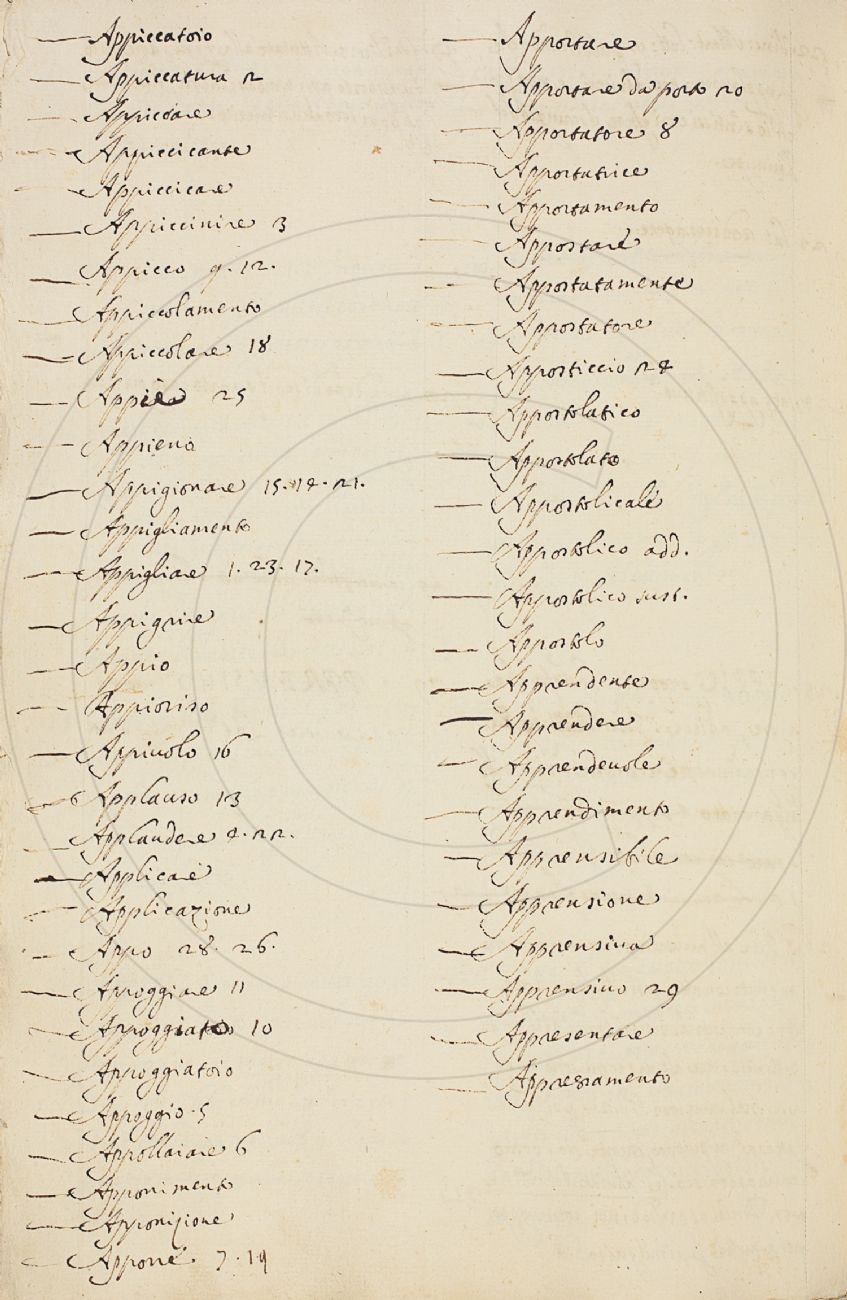 Appiccatoio
Appiccatura 2
Appiccare
Appiccicante
Appiccicare
Appiccinire 3
Appicco 9. 12.
Appiccolamento
Appiccolare 18
Appiè 25
Appieno
Appigionare 15. 14. 21.
Appigliamento
Appigliare 1. 23. 17.
Appigrire
Appio
Appioriso
Appiuolo 16
Applauso 13
Applaudere 4. 22.
Applicare
Applicazione
Appo 28. 26.
Appoggiare 11
Appoggiato 10
Appoggiatoio
Appoggio. 5
Appollaiare 6
Apponimento
Apponizione
Apporre. 7. 19
Apportare
Apportare da porto 20
Apportatore 8
Apportatrice
Apportamento
Appostare
Appostatamente
Appostatore
Apposticcio 24
Appostolatico
Appostolato
Appostolicale
Appostolico add.
Appostolico sust.
Appostolo
Apprendente
Apprendere
Apprendeuole
Apprendimento
Apprensibile
Apprensione
Apprensiua
Apprensiuo 29
Appresentare
Appressamento